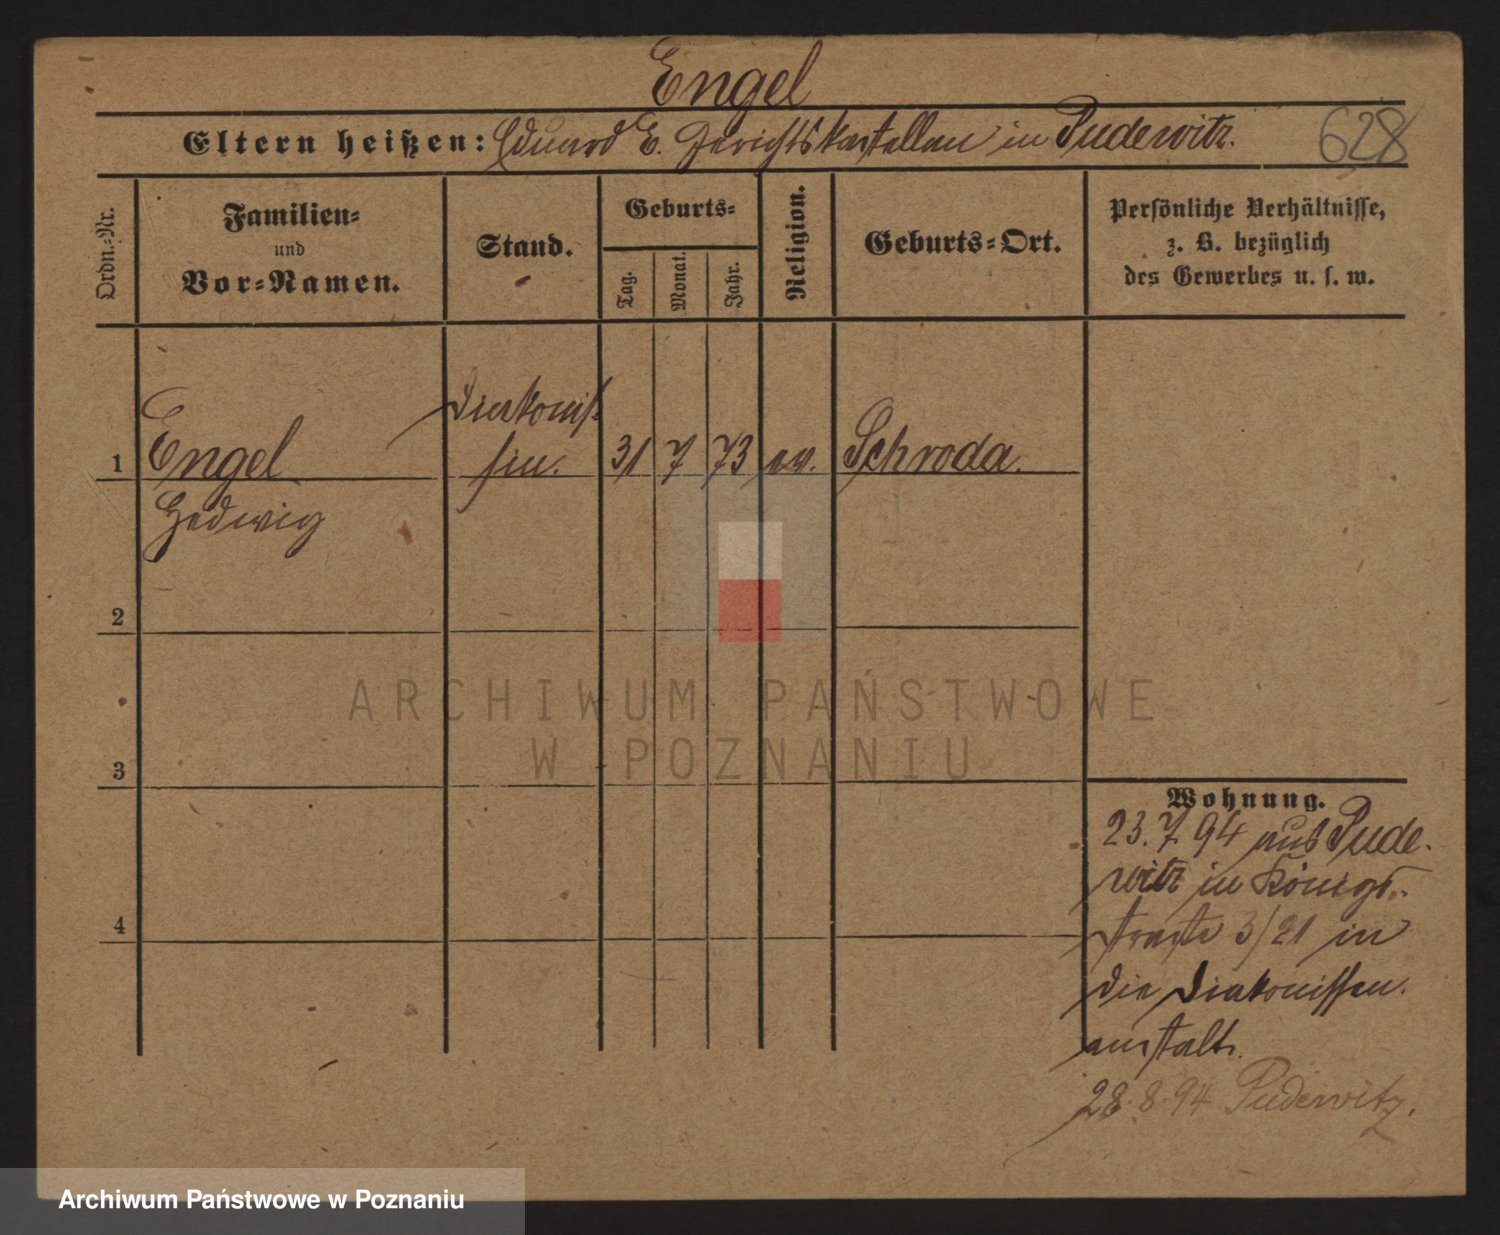 Engel
Eltern heißen: Eduard E. Gerichtskastellan in Pudewitz.
628
Ordn.-Nr.
Familien-
und
Vor-Namen.
Stand.
Geburts-
Tag.
Monat.
Jahr.
Religion.
Geburts-Ort.
Persönliche Verhältnisse,
z. B. bezüglich
des Gewerbes u. s. w.
1
Engel
Hedwig
Diakonis-
sin.
31
7
73
ev.
Schroda.
2
3
4
Wohnung.
23.7.94 aus Pude-
witz in Königs-
straße 3/21 in
die Diakonissen-
anstalt.
28.8.94 Pudewitz.
ARCHIWUM PAŃSTWOWE
W POZNANIU
Archiwum Państwowe w Poznaniu